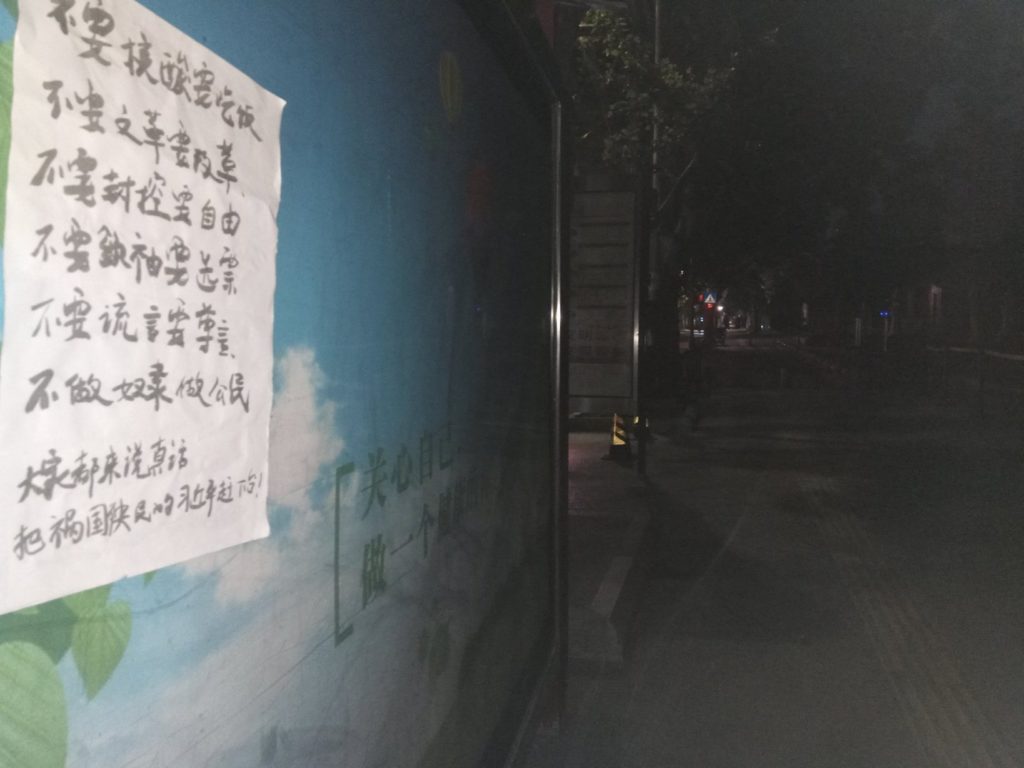 不要核酸要吃饭
不要文革要改革
不要封控要自由
不要领袖要选票
不要谎言要尊言
不做奴隶做公民
大家都来说真话
把祸国殃民的习近平赶下台!
关心自己
做一个